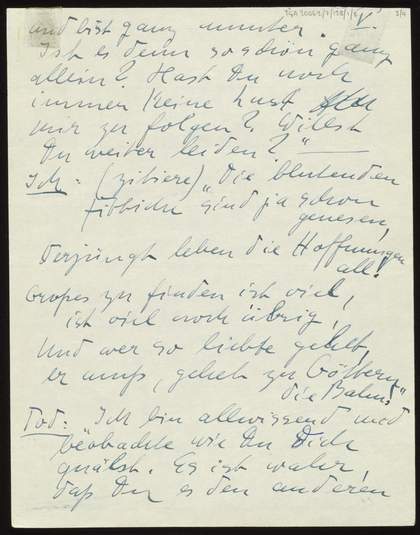 TGA 20052/1/128/1/5
3/4
V.
und bist ganz munter.
Ist es denn so schön ganz
allein? Hast Du noch
immer keine Lust
mir zu folgen? Willst
Du weiter leiden?"
Ich: (zitiere) „Die blutenden
Fittiche sind ja schon
genesen,
Verjüngt leben die Hoffnungen
all!
Großes zu finden ist viel,
ist viel noch übrig,
Und wer so liebte gehet,
er muß, gehet zu Göttern
die Bahn."
Tod: „Ich bin allwissend und
beobachte wie Du Dich
quälst. Es ist wahr,
daß Du es den anderen